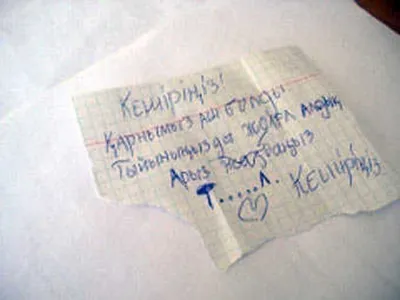 Кешіріңіз!
Қарнымыз аш болды
Тыйыныңызды жолға алдық
Арыз жазбаңыз
Т.....Л.
Кешіріңіз